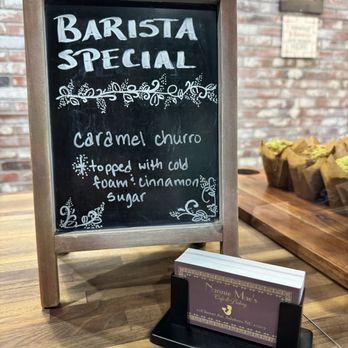 BARISTA
SPECIAL
caramel churro
*topped with cold
foam + cinnamon
sugar
Nannie Mae's
Cafe & Bakery